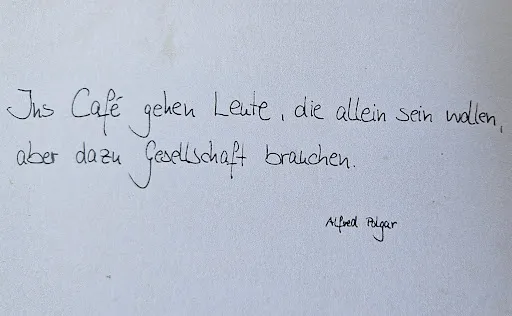 Ins Café gehen Leute, die allein sein wollen,
aber dazu Gesellschaft brauchen.
Alfred Polgar